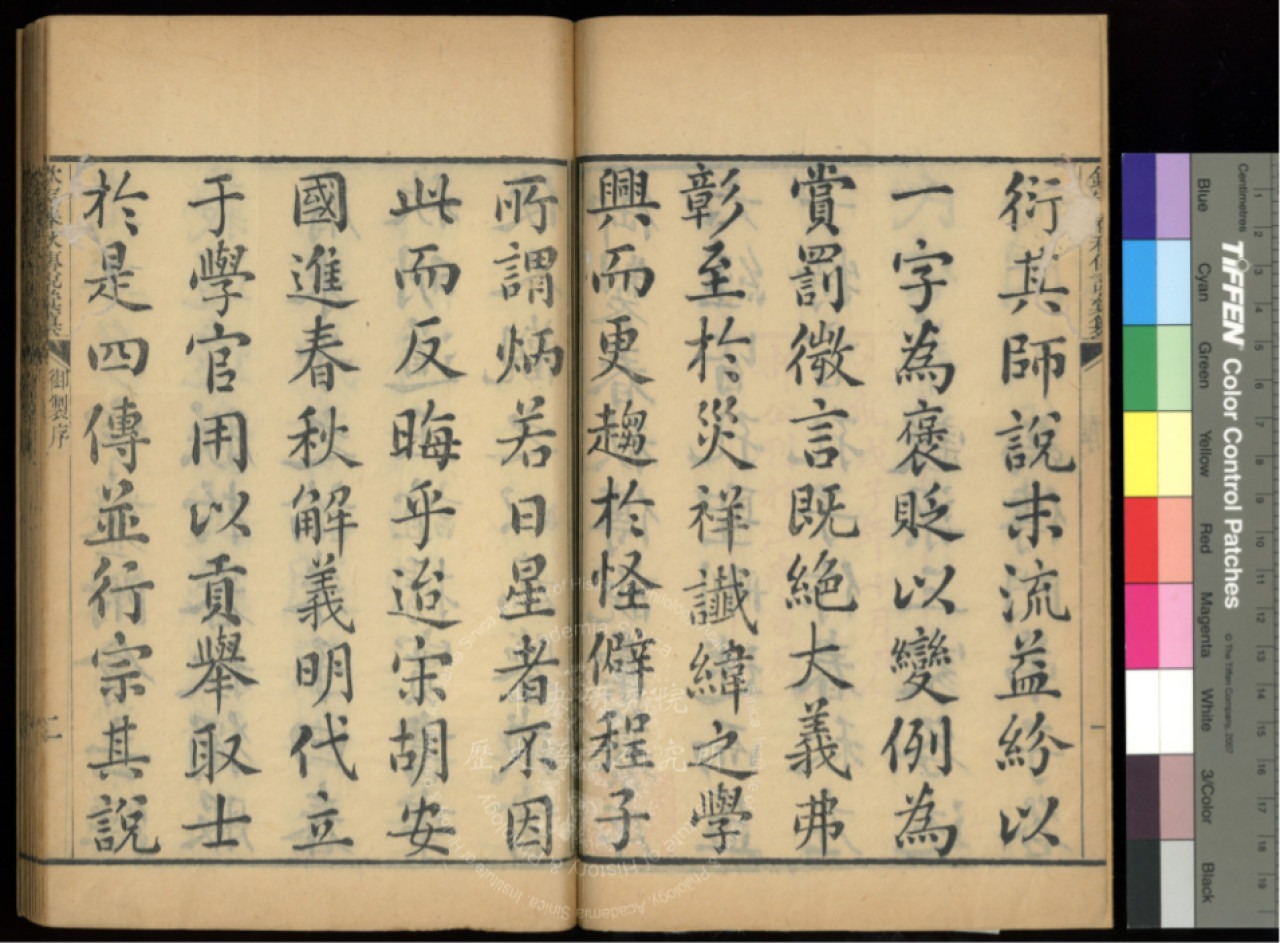 衍其師說末流益紛以
一字為褒貶以變例為
賞罰微言既絕大義弗
彰至於災祥讖緯之學
興而更趨於怪僻程子
所謂炳若日星者不因
此而反晦乎迨宋胡安
國進春秋解義明代立
于學官用以貢舉取士
於是四傳並行宗其說
御製序
二
一
Centimetres
TIFFEN Color Control Patches
© The Tiffen Company, 2007
Blue
Cyan
Green
Yellow
Red
Magenta
White
3/Color
Black
1 2 3 4 5 6 7 8 9 10 11 12 13 14 15 16 17 18 19